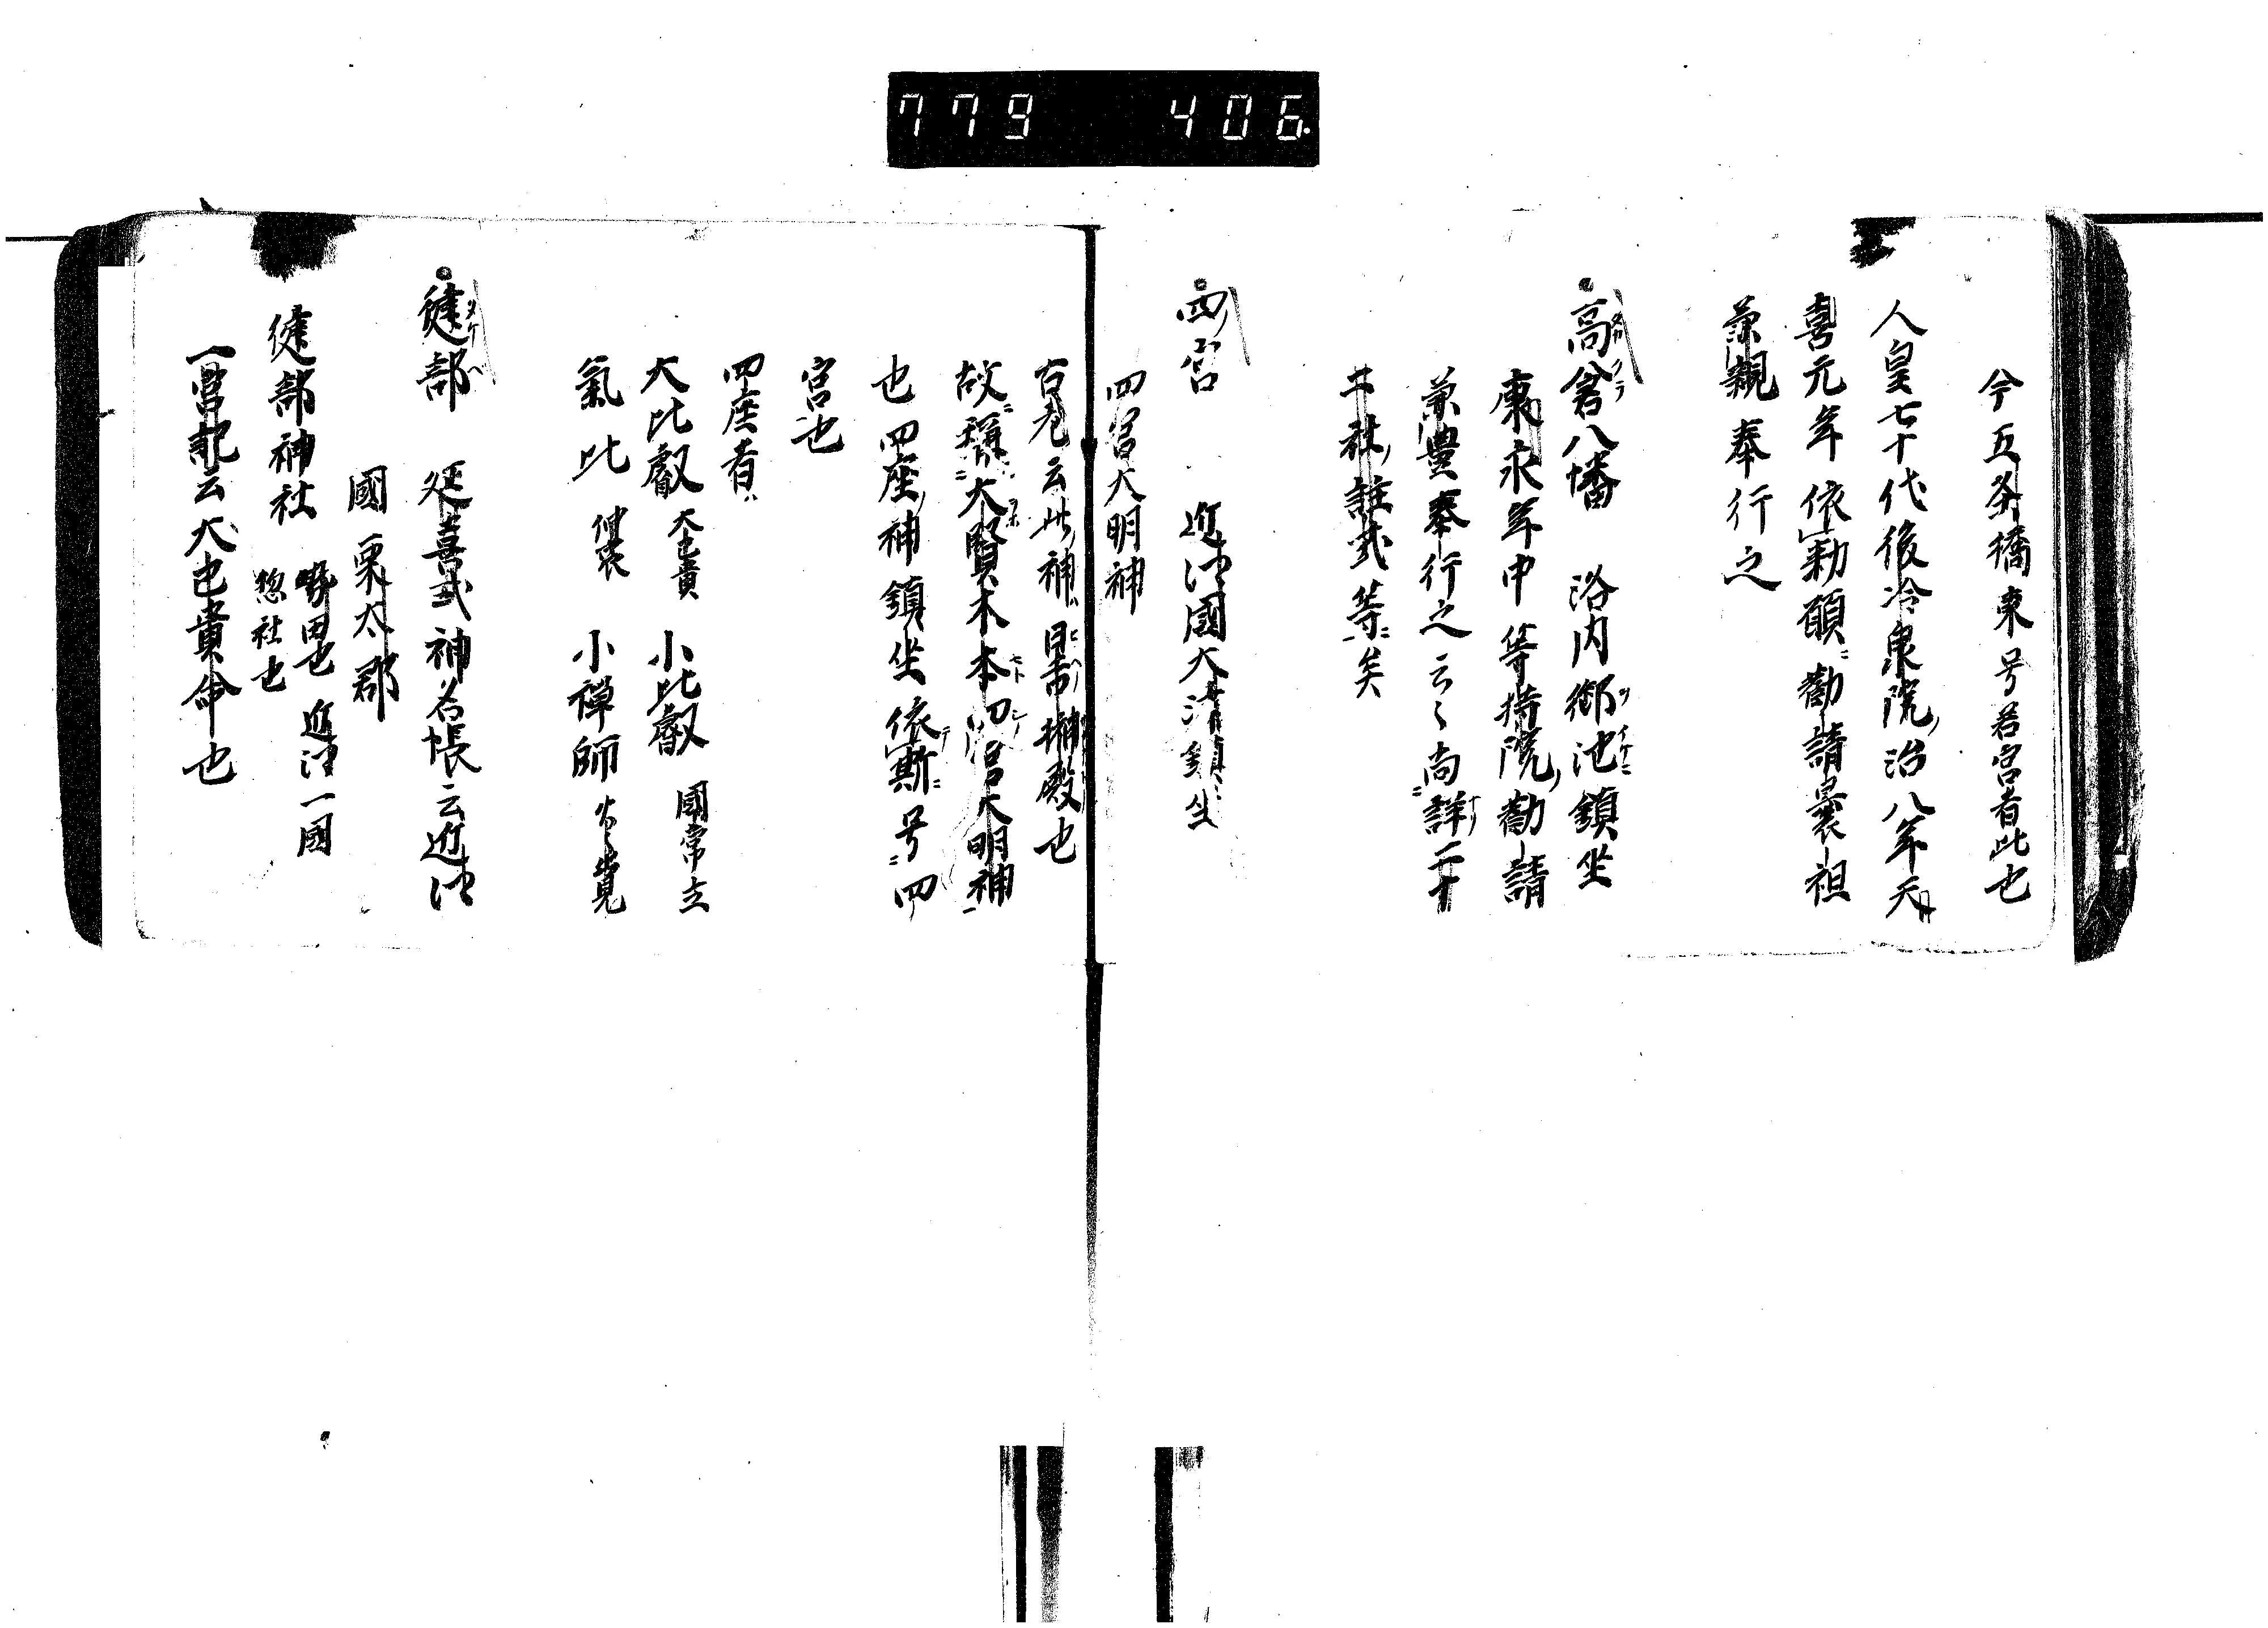 779 406
今五条橋東号若宮者此也
人皇七十代後冷泉院ノ治八年天
喜元年依勅願ニ勧請曩祖
兼親奉行之
高倉八幡 洛内御池鎮坐
康永年中等持院ノ勧請
兼豊奉行之云々尚詳二十
二社ノ註式等ニ矣
四宮 近江國大津鎮坐
四宮大明神
古老云此神ハ日本拝殿也
故ニ称ニ大賢木本四宮大明神ニ
也四座ノ神鎮坐依斯ニ号ニ四
宮也
四座者
大比叡 大己貴 小比叡 國常立
氣比 仲哀 小禅師 火々出見
建部 延喜式神名帳云近江
國栗太郡
建部神社 勢田也 近江一國
惣社也
一宮記云大己貴命也